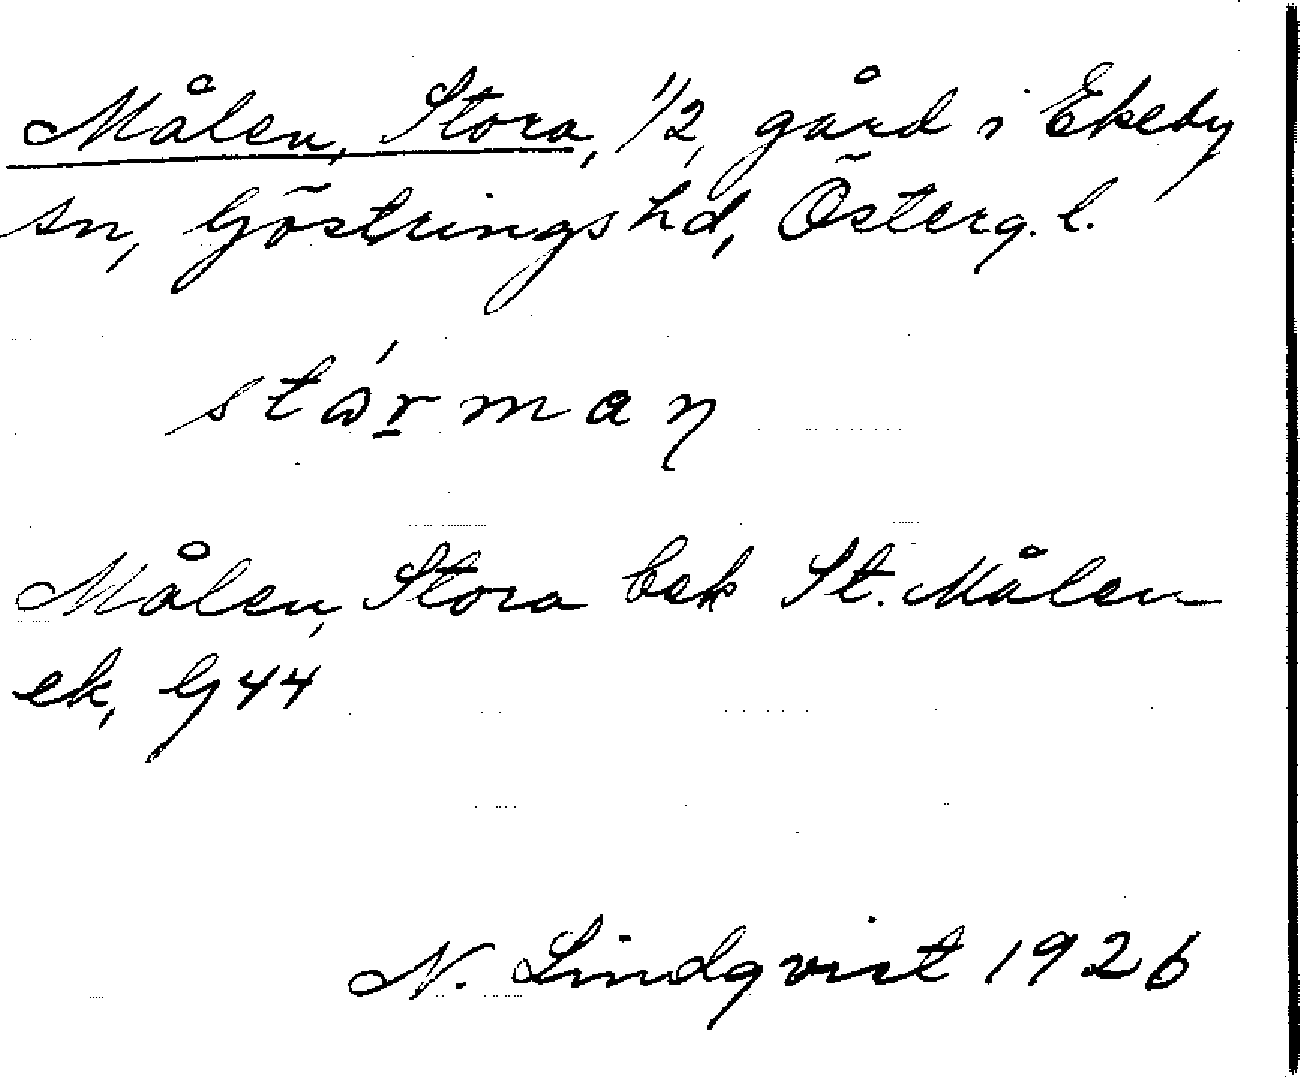 Målen, Stora, 1/2, gård i Ekeby
sn, Göstrings hd, Österg. l.
Målen, Stora bek St. Målen
ek, G44
N. Lindqvist 1926